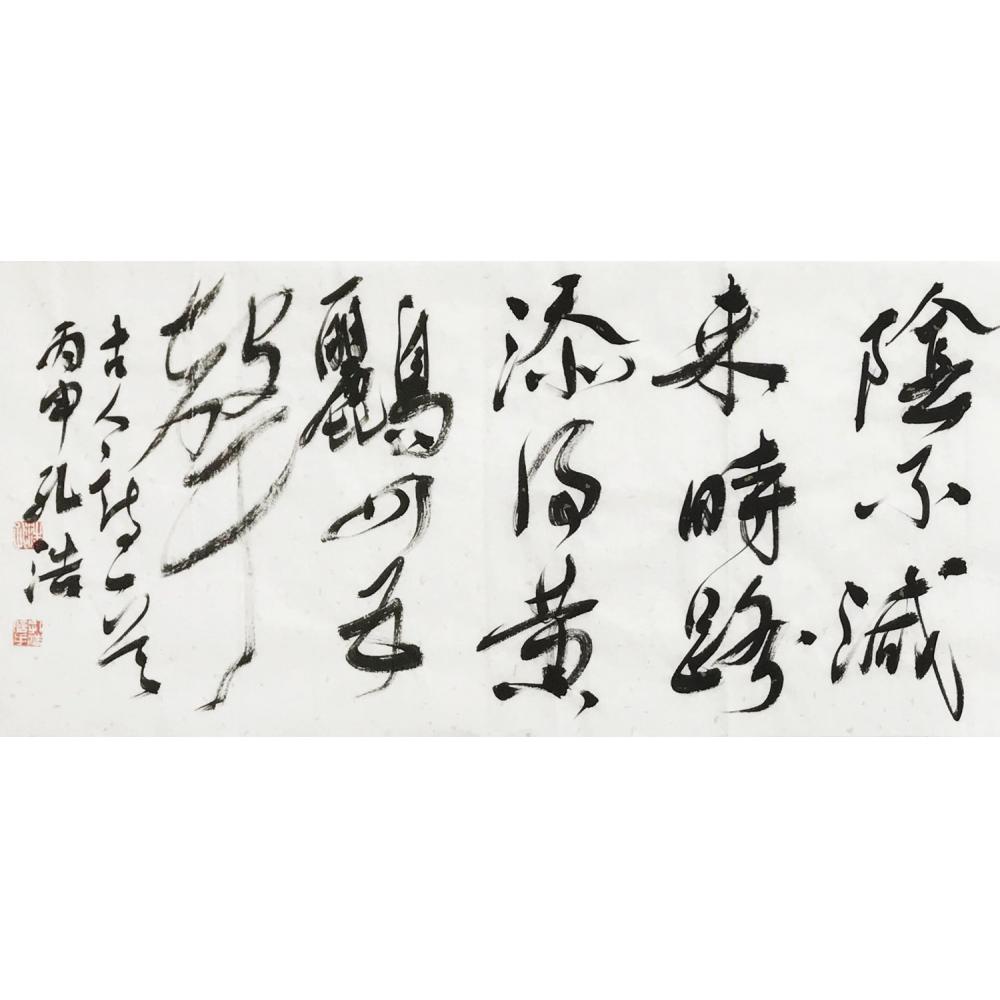 陰不減
来時路
添得黄
鸝四五
聲
古人詩一首
丙申孔浩